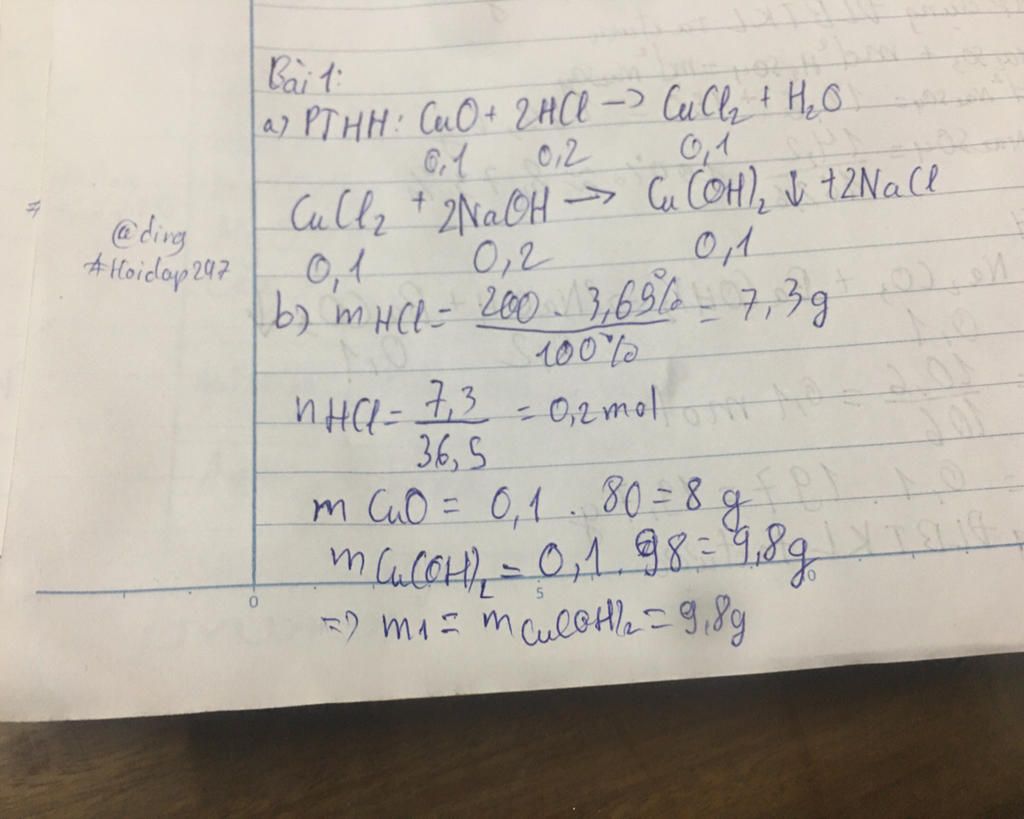 Bài 1:
a) PTHH: CuO + 2HCl -> CuCl2 + H2O
0,1 0,2 0,1
CuCl2 + 2NaOH -> Cu(OH)2 ↓ + 2NaCl
0,1 0,2 0,1
@ding
#Hoidap247
b) mHCl = 200 . 3,65% / 100% = 7,3g
nHCl = 7,3 / 36,5 = 0,2 mol
m CuO = 0,1 . 80 = 8 g
m Cu(OH)2 = 0,1 . 98 = 9,8g
0 5 10
=> m1 = m Cu(OH)2 = 9,8g